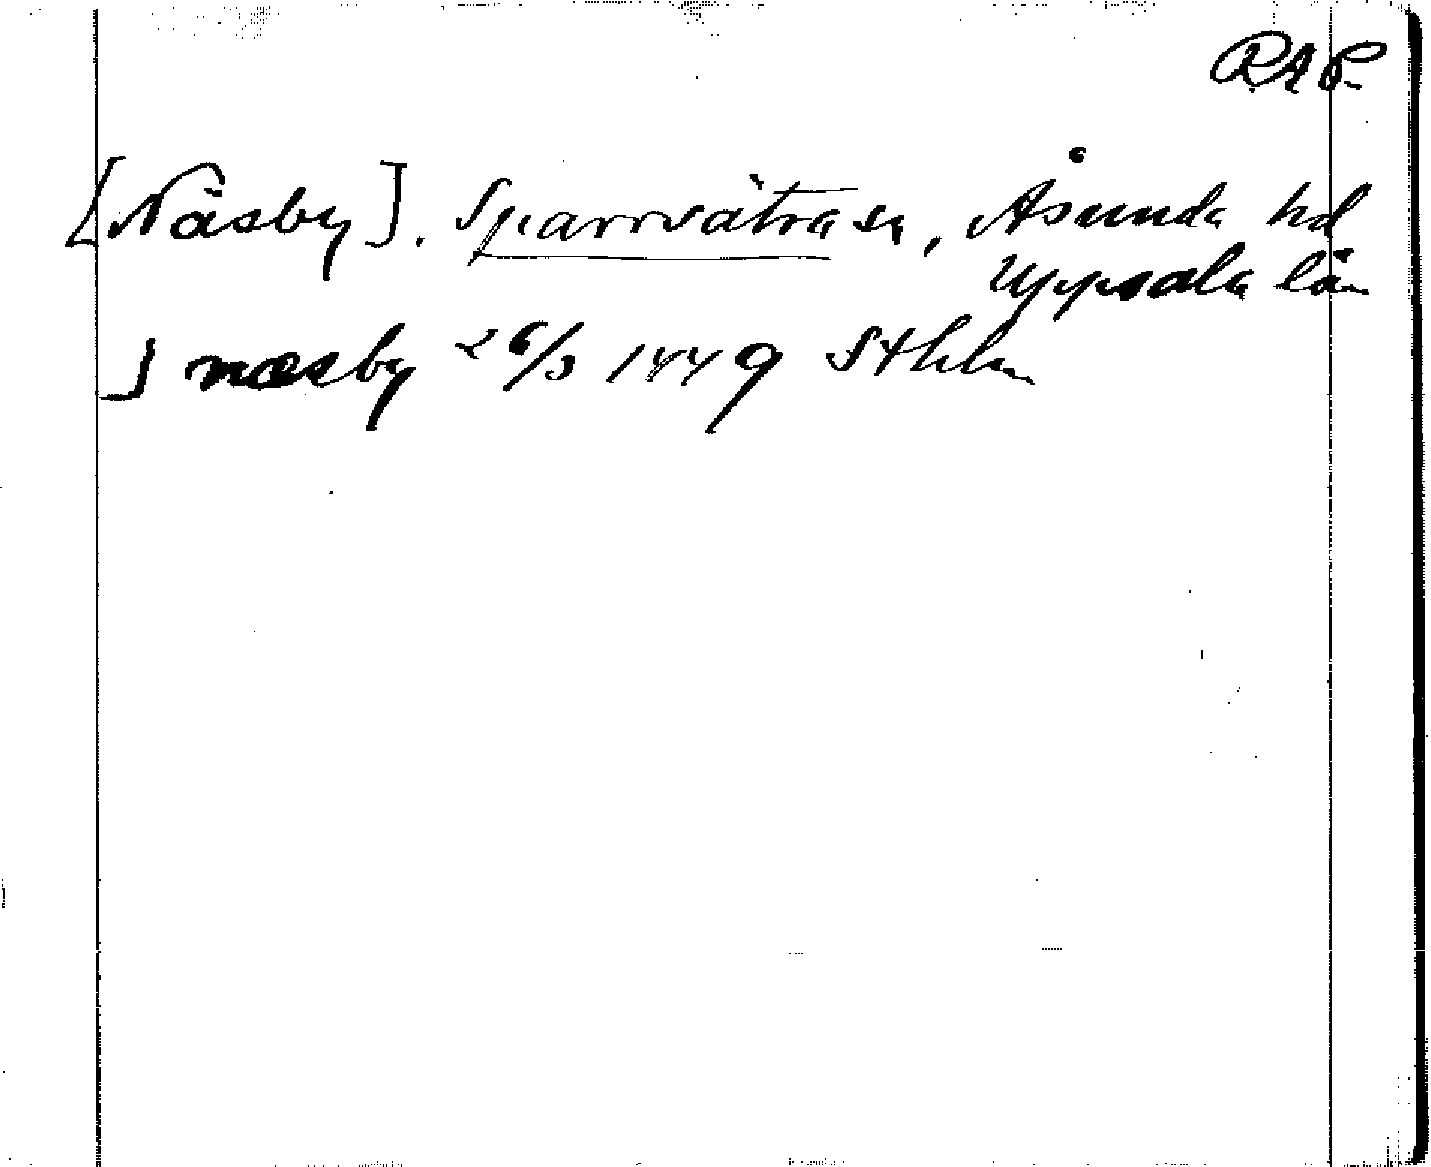 RAP.
[Näsby]. Sparrsätra sn, Åsunda hd
Uppsala län
J næsby 26/3 1449 Sthlm